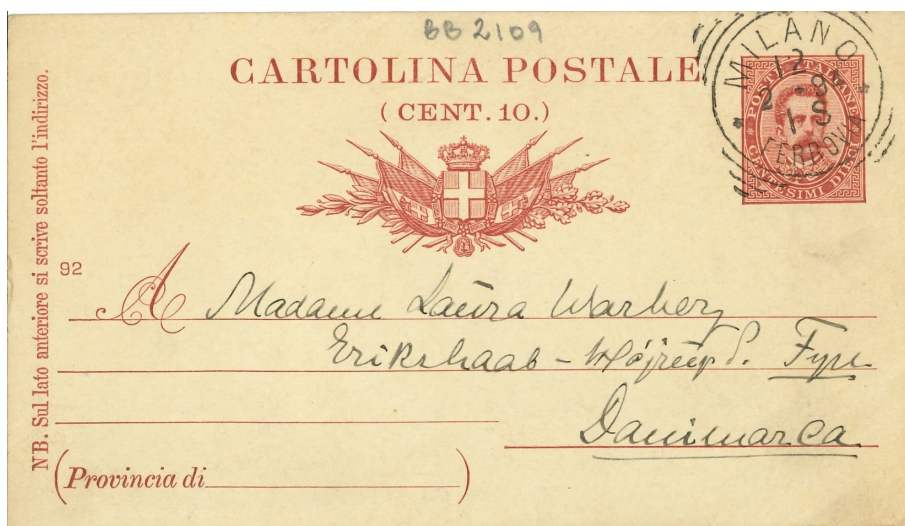 BB2109
CARTOLINA POSTALE
(CENT. 10.)
MILANO
12
2 - 9
1 S
FERROVIA
POSTE ITALIANE
CENTESIMI DIECI
NB. Sul lato anteriore si scrive soltanto l'indirizzo.
92
A Madame Laura Warberg
Erikshaab - Højrup S. Fyn
Danimarca
(Provincia di )